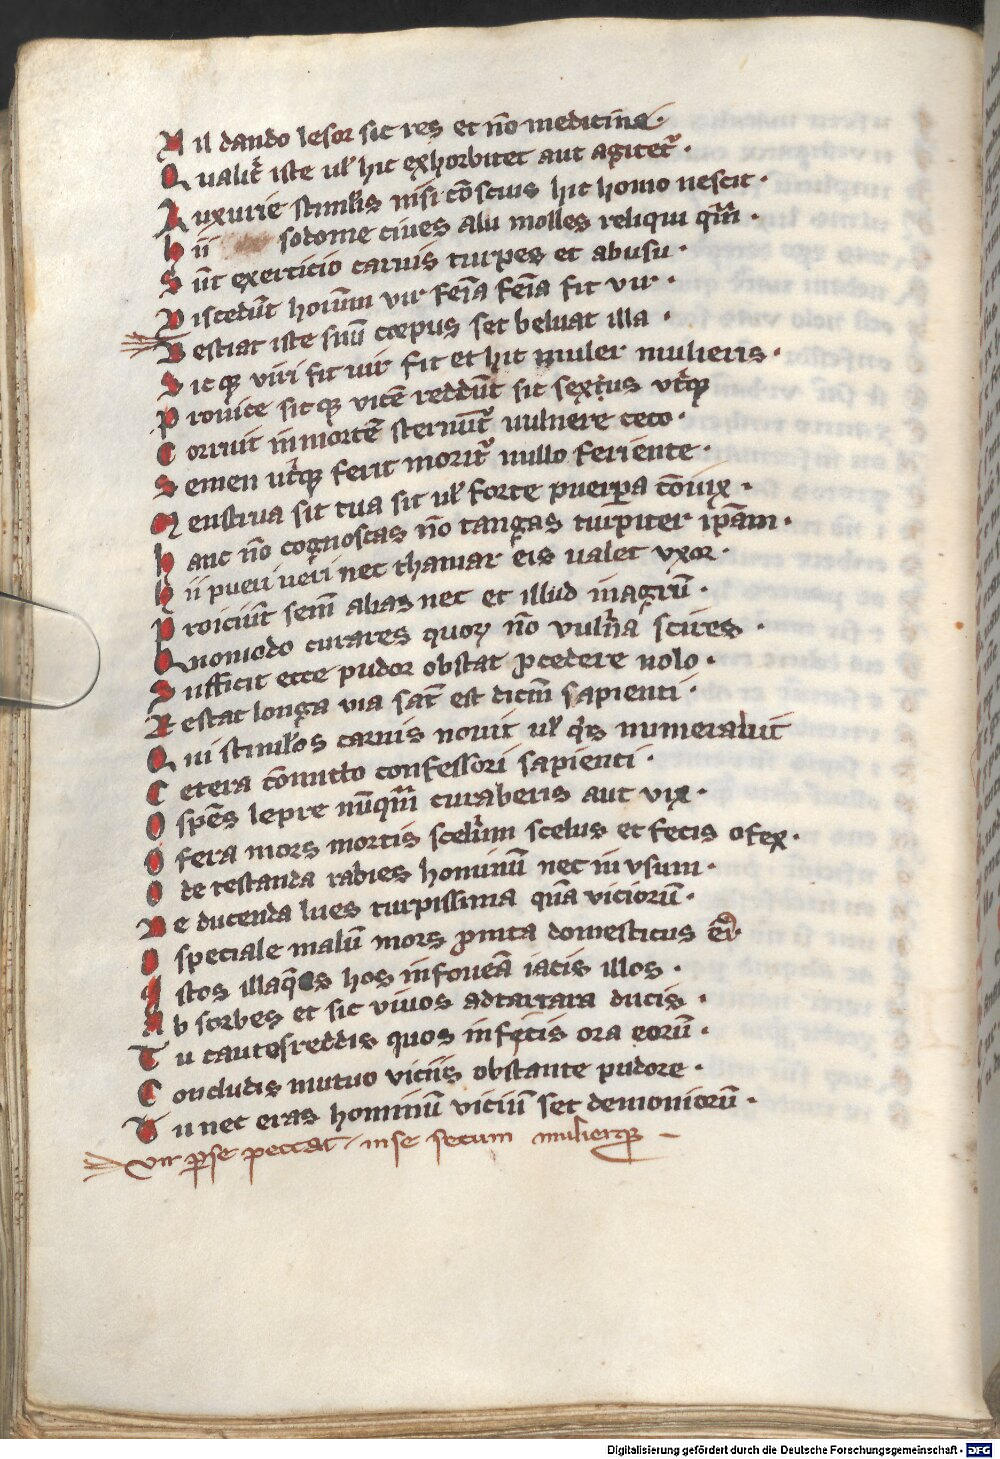 Nil dando lesor sic res et nō medicina·
Qualit̄ iste ul̄ hic exhorbitet aut agitet᷑·
Luxurie stimul̄is nisi cōscius hic homo nescit·
hii sodome ciues alii molles reliqui qm̄·
Sūt exercicio carnis turpes et abusu·
Discedūt hoīum vir fēīa fēīa fit vir·
Bestiat iste suū corpus set beluat illa·
Sic qꝫ viri fit uir fit et hic muler mulieris·
Prouice sic qꝫ vicē reddūt sic sexus vt̄qꝫ
Corruit in mortē sternūt᷑ uulnere ceco·
Semen ut̄qꝫ ferit morit᷑ nullo feriente·
Menstrua sit tua sit ul̄ forte puerꝑa cōiux·
hanc nō cognoscas nō tangas turpiter ip̄am·
hii pueri ueri nec thamar eis ualet vxor·
Proiciūt semē alias nec et illud in agrū·
Quomodo curares quoꝝ nō vuln̄a scires·
Sufficit ecce pudor obstat ꝓcedere nolo·
Restat longa via sat̄ est dictū sapienti·
Qui stimul̄os carnis nouit ul̄ q̄s numerabit
Cetera cōmitto confessori sapienti·
O spēs lepre nūqm̄ curaberis aut vix·
O fera mors mortis scelerum scelus et fecis o fex·
O detestanda rabies hominū nec in vsum·
Deducenda lues turpissima q̄m viciorū·
O speciale malū mors ꝓuita domesticus
Istos illaq̄as hos in foueā iacis illos·
Absorbes et sic viuos ad tartara ducis·
Tu cautos reddis quos inficis ora eorū·
Concludis mutuo viciis obstante pudore·
Tu nec eras hominū viciū set demoniorū·
vir ꝑ se peccat / in se secum mulierqꝫ –
Digitalisierung gefördert durch die Deutsche Forschungsgemeinschaft - DFG